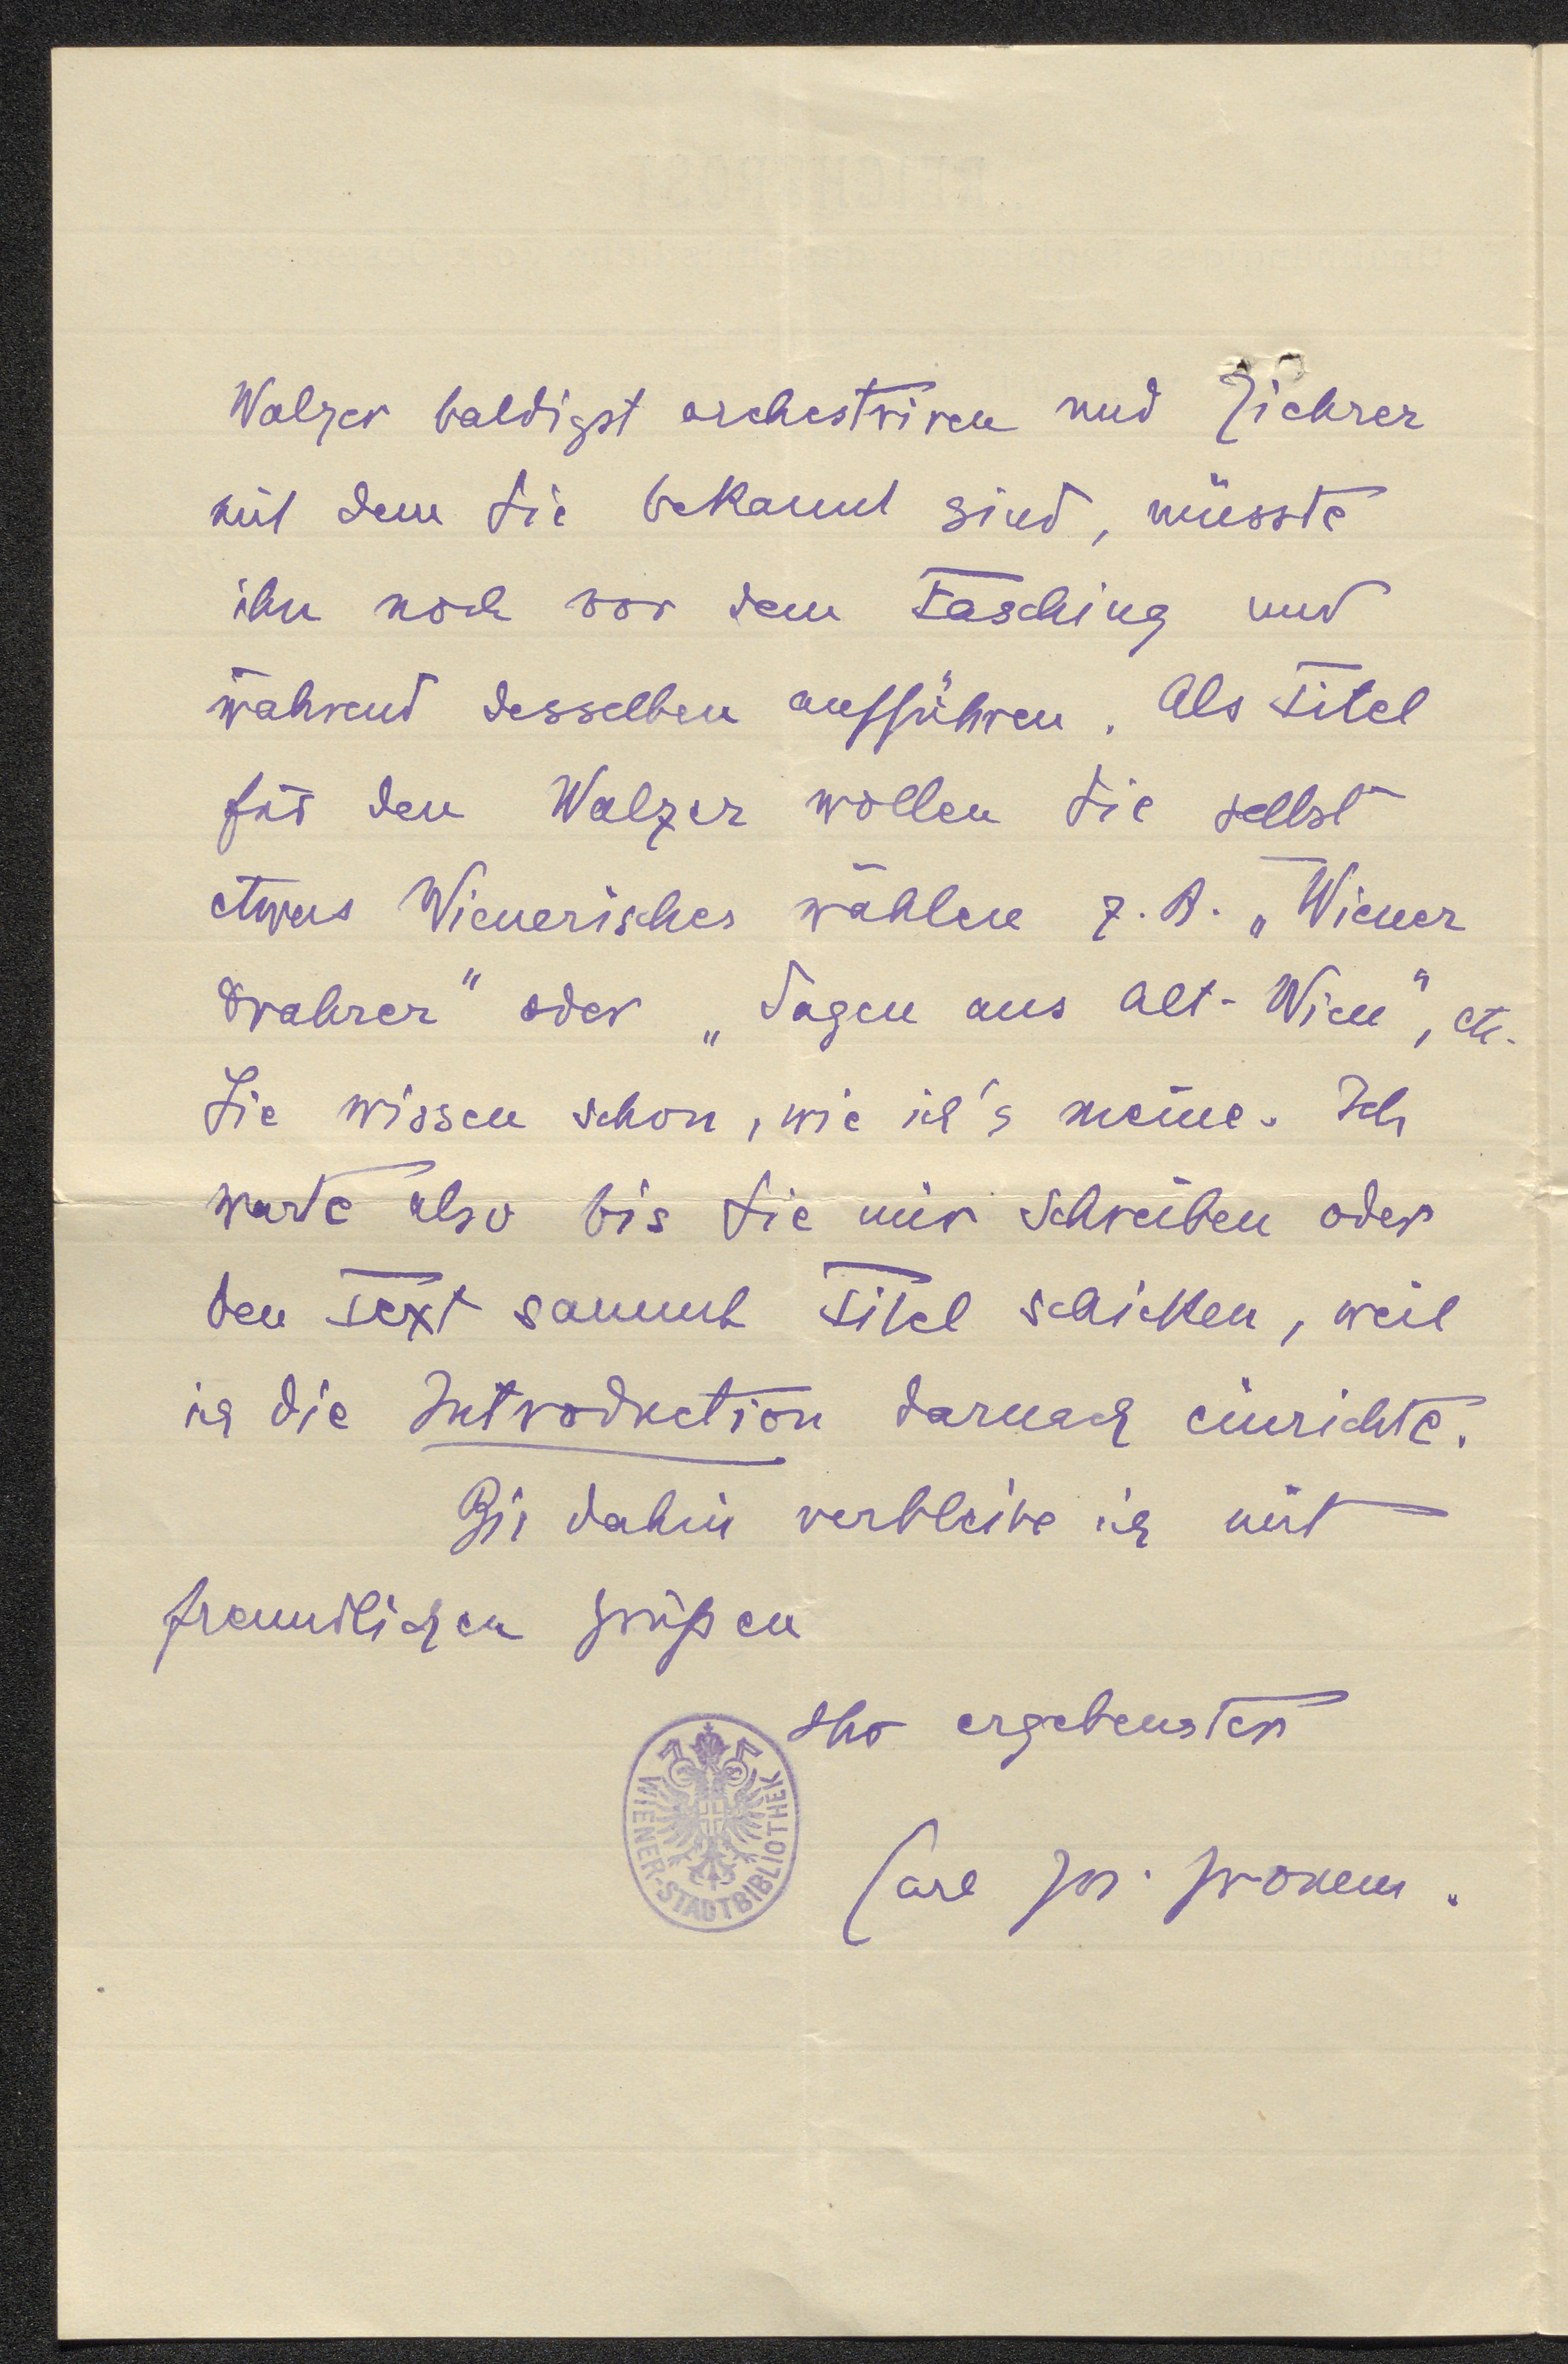 Walzer baldigst orchestriren und Ziehrer
mit dem Sie bekannt sind, müsste
ihn noch vor dem Fasching und
während desselben aufführen. Als Titel
für den Walzer wollen Sie selbst
etwas Wienerisches wählen z. B. „Wiener
Drahrer" oder „Sagen aus Alt-Wien", etc.
Sie wissen schon, wie ich's meine. Ich
warte also bis Sie mir schreiben oder
den Text sammt Titel schicken, weil
ich die Introduction darnach einrichte.
Bis dahin verbleibe ich mit
freundlichen Grüßen
Ihr ergebenster
Carl
WIENER-STADTBIBLIOTHEK